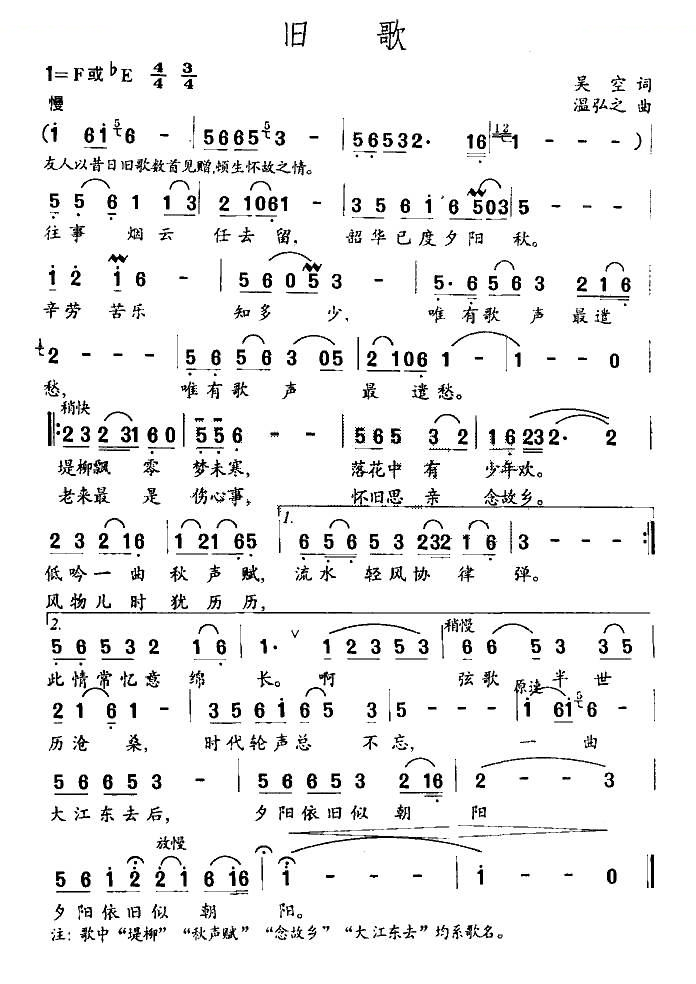 旧 歌
1=F或♭E 4/4 3/4
吴空 词
慢
温弘之 曲
(i 6i 6 - | 5665 3 - | 56532· 16 | 1 - - - )|
友人以昔日旧歌数首见赠,顿生怀故之情。
5 5 6 1 1 3 | 2 1061 - | 3 5 6 i 6 503 | 5 - - - |
往事 烟云 任去留, 韶华已度夕阳 秋。
i 2 i 6 | 5 6 0 5 3 | 5· 6 5 6 3 2 1 6 |
辛劳 苦乐 知多 少, 唯有歌 声 最遣
2 - - - | 5 6 5 6 3 05 | 2 106 1 - | 1 - - 0 |
愁, 唯有歌 声 最 遣愁。
稍快
‖: 2 3 2 3 1 6 0 | 5 5 6 - | 5 6 5 3 2 | 1 6 23 2· 2 |
堤柳飘 零 梦未寒, 落花中 有 少年欢。
老来最 是 伤心事, 怀旧思 亲 念故乡。
1.
2 3 2 16 | 1 21 65 | 6 5 6 5 3 232 1 6 | 3 - - - :‖
低吟一 曲 秋声赋, 流水 轻风协 律 弹。
风物儿 时 犹历历,
2.
稍慢
5 6 5 3 2 1 6 | 1· 1 2 3 5 3 | 6 6 5 3 3 5 |
此情常忆意 绵 长。啊 弦歌 半世
原速
2 1 6 1 - | 3 5 6 i 6 5 3 | 5 - - - | i 6i 6 - |
历沧 桑, 时代轮声总 不忘, 一 曲
5 6 6 5 3 - | 5 6 6 5 3 2 16 | 2 - - 3 |
大江东去后, 夕阳依旧似 朝 阳
放慢
5 6 i 2 2 i 6 i6 | i - - - | i - - 0 ‖
夕阳依旧似 朝 阳。
注:歌中“堤柳” “秋声赋” “念故乡” “大江东去”均系歌名。